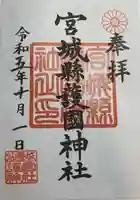 奉拝
宮城縣護國神社
令和五年十月一日